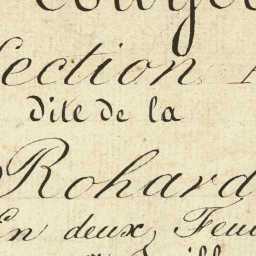 Section
dite de la
Rohard
En deux Feui